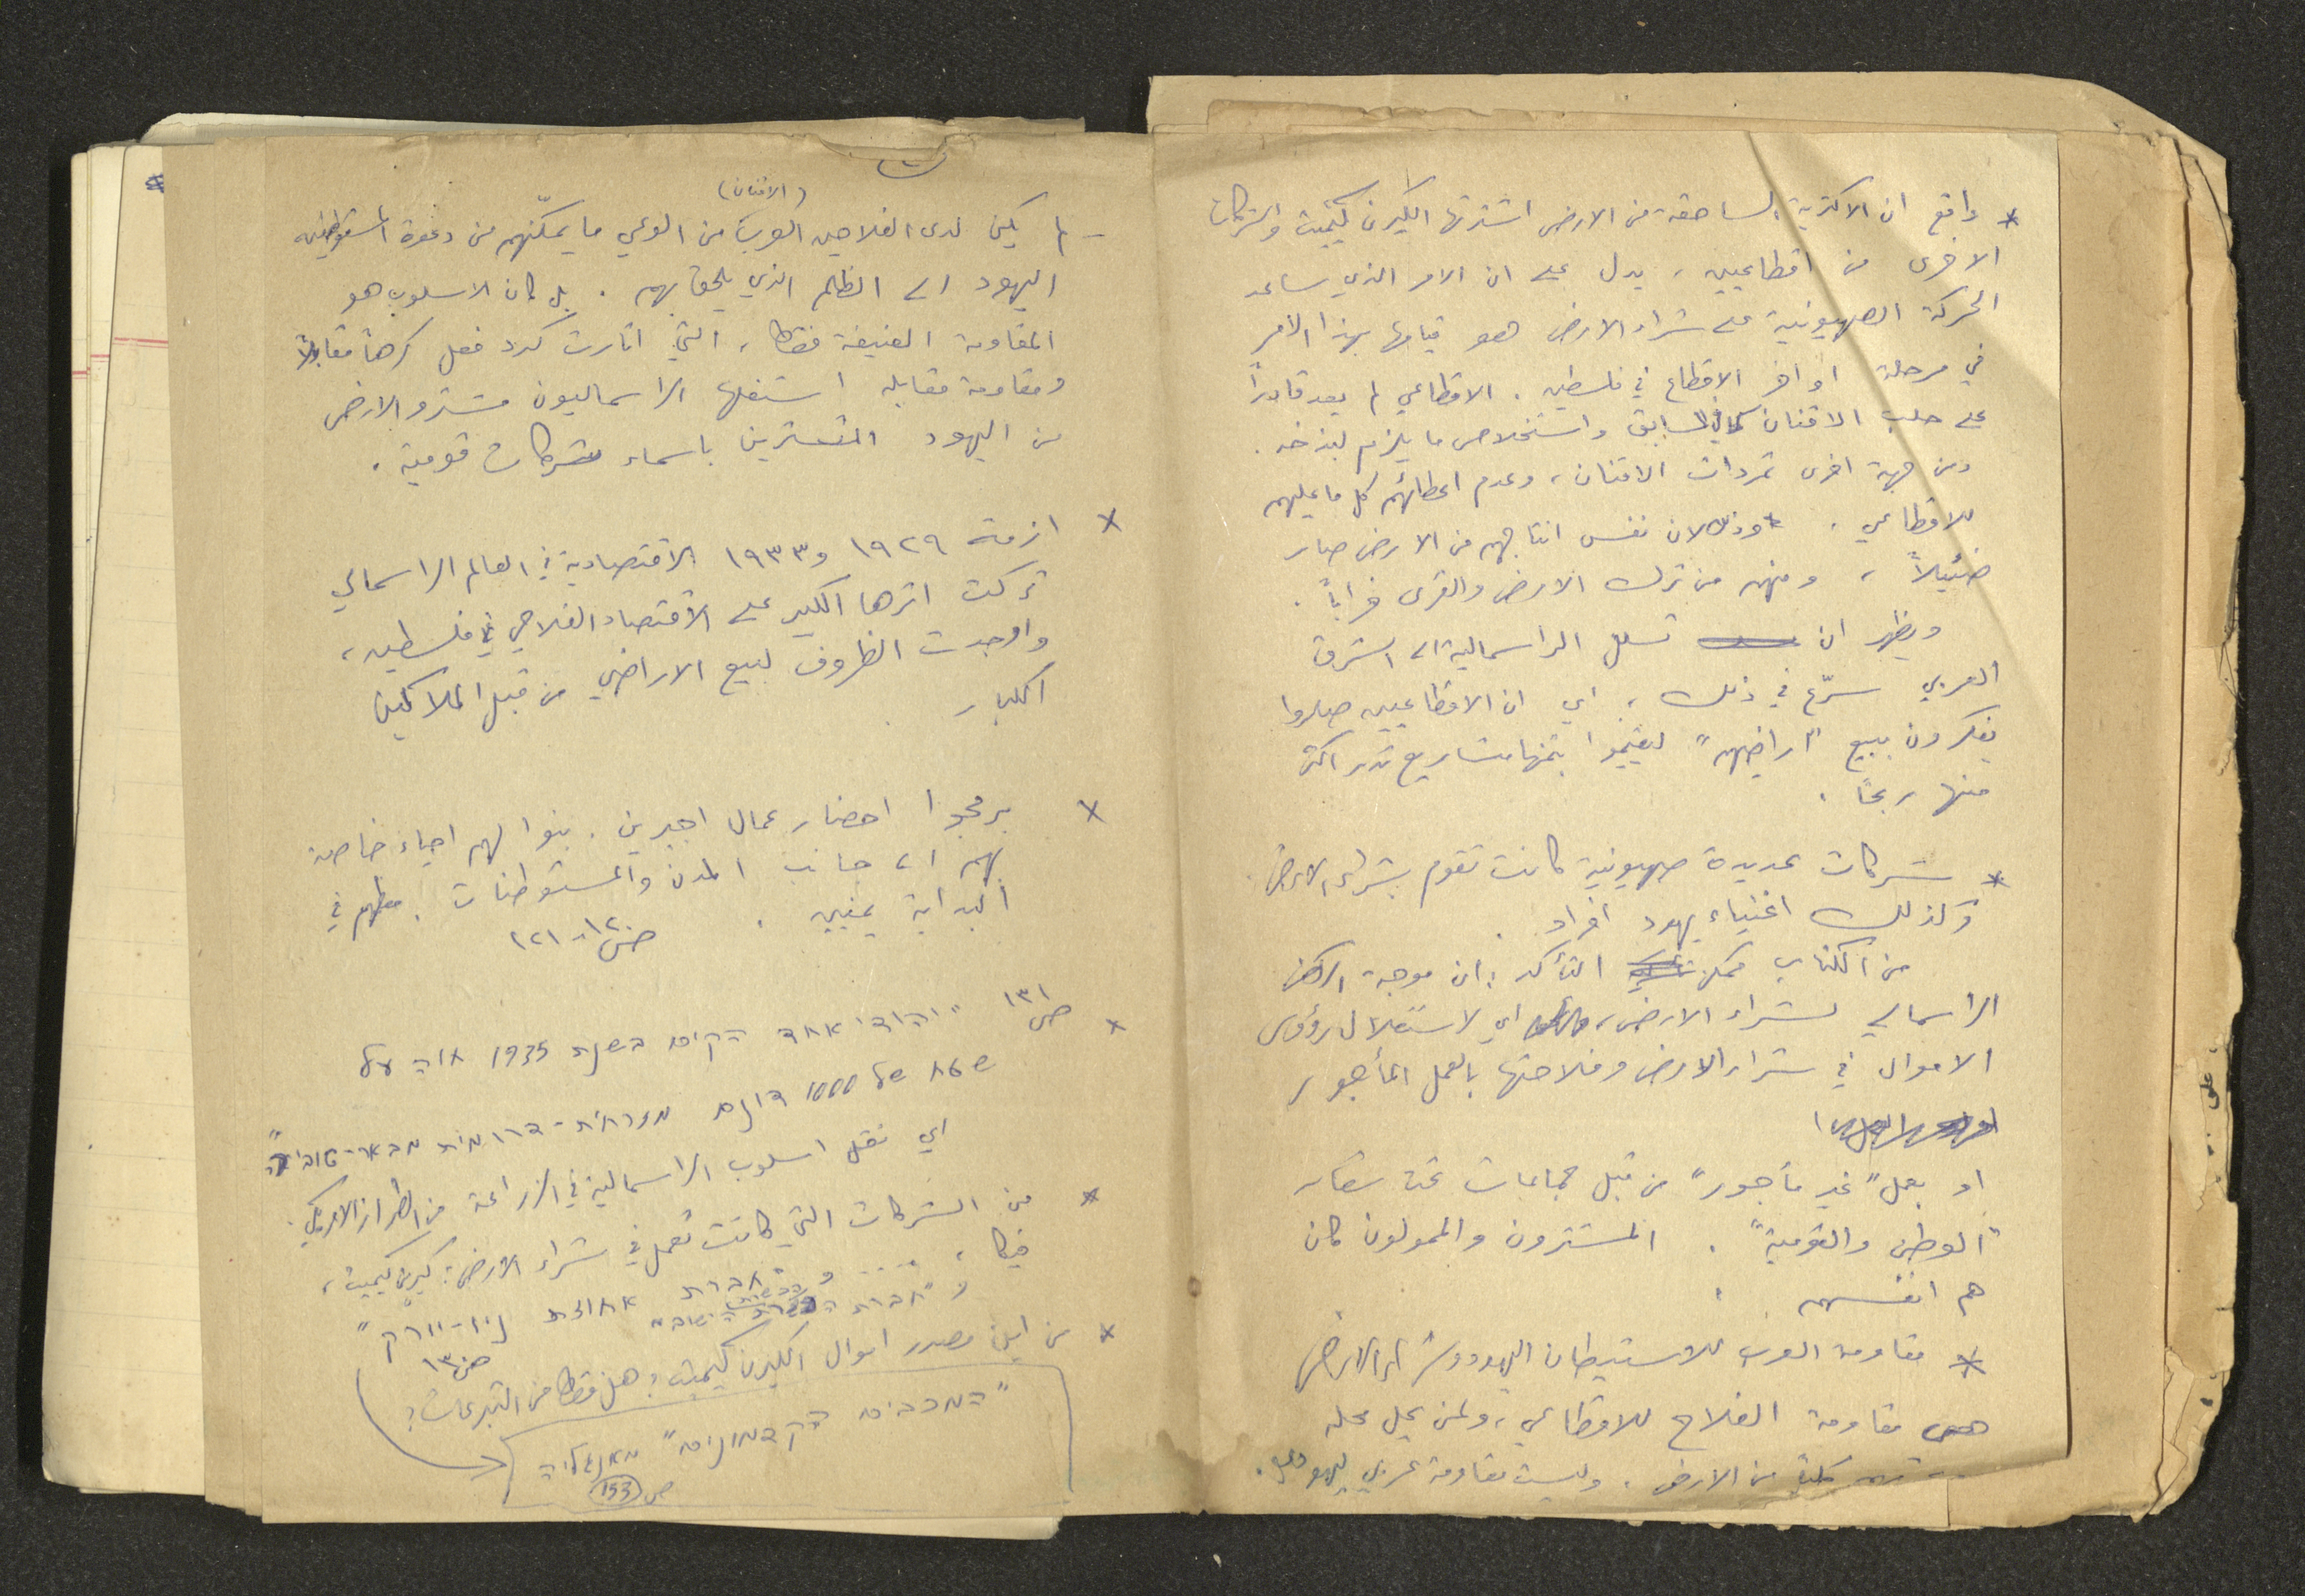 * واقع ان الاكثرية الساحقة من الارض اشترتها الكيرن كييمت والشركات
الاخرى من اقطاعيين، يدل على ان الامر الذي ساعد
الحركة الصهيونية على شراء الارض هو قيامها بهذا الامر
في مرحلة اواخر الاقطاع في فلسطين. الاقطاعي لم يعد قادراً
على حلب الاقنان كما في السابق واستخلاص ما يلزم لبذخه.
ومن جهة اخرى تمردات الاقنان، وعدم اعطائهم كل ما عليهم
للاقطاعي. وذلك لان نفس انتاجهم من الارض صار
ضئيلاً، ومنهم من ترك الارض والقرى خراباً.
ويظهر ان تسلل الراسمالية الى الشرق
العربي سرّع في ذلك، اي ان الاقطاعيين صاروا
يفكرون ببيع "اراضيهم" ليقيموا بثمنها مشاريع تدر اكثر
منها ربحاً.
* شركات عديدة صهيونية كانت تقوم بشراء الارض.
وكذلك اغنياء يهود افراد.
من الكتاب ممكن التأكد: ان موجة
الراسمالي لشراء الارض، اي لاستغلال رؤوس
الاموال في شراء الارض وفلاحتها بالعمل المأجور
او بعمل "غير مأجور" من قبل جماعات تحت ستار
"الوطن والقومية". المشترون والممولون كان
هم انفسهم.
* مقاومة العرب للاستيطان اليهودي وشراء الارض
هي مقاومة الفلاح للاقطاعي، ولمن يحل محله
من الارض. وليست مقاومة عربي ليهودي.
(الاقنان)
- لم يكن لدى الفلاحين العرب من الوعي ما يمكّنهم من دعوة المستوطنين
اليهود الى الظلم الذي يلحق بهم. بل كان الاسلوب هو
المقاومة العنيفة فقط، التي اثارت كرد فعل كرهاً مقابلاً
ومقاومة مقابلة استغلها الراسماليون مشترو الارض
من اليهود المتسترين باسماء شركات قومية.
* ازمة ١٩٢٩ و١٩٣٣ الاقتصادية في العالم الراسمالي
تركت اثرها الكبير على الاقتصاد الفلاحي في فلسطين،
واوجدت الظروف لبيع الاراضي من قبل الملاكين
الكبار.
* برمجوا احضار عمال اجيرين. بنوا لهم احياء خاصة
بهم الى جانب المدن والمستوطنات. معظمهم في
البداية يمنيين. ص ١٢٠-١٢١
* ص١٣١ "יהודי אחד הקים בשנת 1935 חוה על
שטח של 1000 דונם מזרחית-דרומית מבאר-טוביה"
اي نقل اسلوب الراسمالية في الزراعة من الطراز الامريكي.
* من الشركات التي كانت تعمل في شراء الارض: كيرن كييمت،
فيكا، .... و "חברת
و "חברת הכשרת הישוב" אחוזת ניו-יורק"
ص١٣
* من اين مصدر اموال الكيرن كييمت؟ هل فقط من التبرعات؟
"המכבים הקדמונים" מאנגליה
ص 153